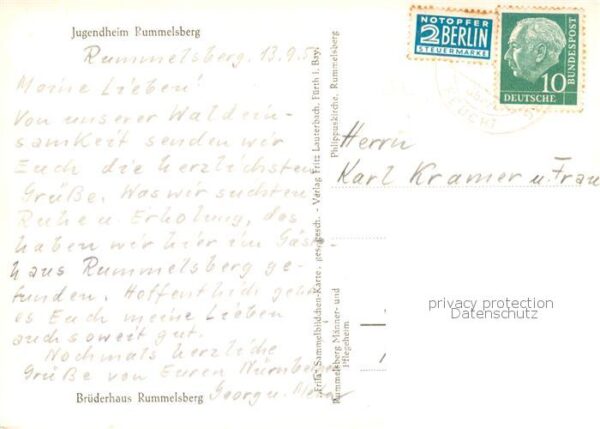 Jugendheim Rummelsberg
Rummelsberg, 13.9.5
Meine Lieben!
Von unserer Waldein-
samkeit senden wir
Euch die herzlichsten
Grüße. Was wir suchten
Ruhe u. Erholung, das
haben wir hier im Gäste
haus Rummelsberg ge-
funden. Hoffentlich geht
es Euch meine Lieben
auch soweit gut.
Nochmals herzliche
Grüße von Euren Nürnberger
Georg u.
Brüderhaus Rummelsberg
"Frila" Sammelbildchen-Karte, ges. gesch. - Verlag Fritz Lauterbach, Fürth i. Bay.
Philippuskirche, Rummelsberg
Rummelsberg Männer- und
Pflegeheim
NOTOPFER
2 BERLIN
STEUERMARKE
10
DEUTSCHE
BUNDESPOST
Herrn
Karl Kramer u. Frau
privacy protection
Datenschutz